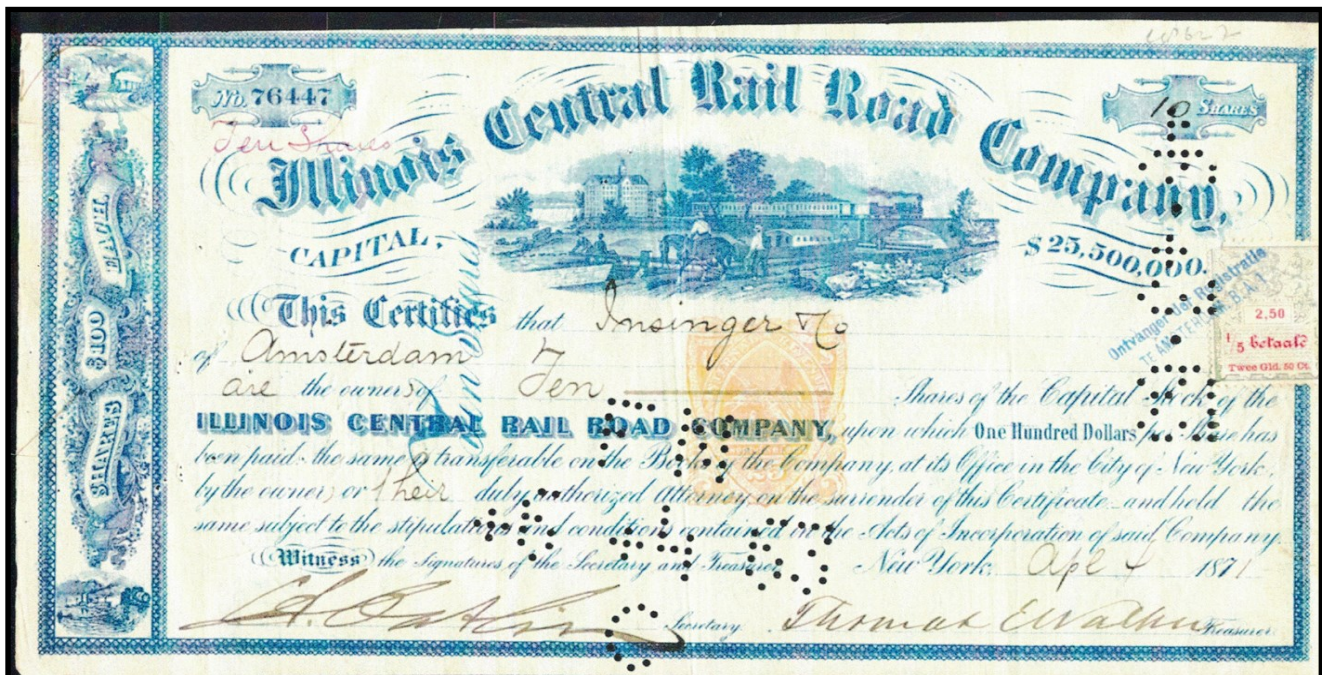 No. 76447
10 SHARES
Ten Shares
Illinois Central Rail Road Company,
CAPITAL,
$25,500,000.
SHARES $100 EACH
This Certifies that Insinger & Co
of Amsterdam
are the owners of Ten Shares of the Capital Stock of the
ILLINOIS CENTRAL RAIL ROAD COMPANY, upon which One Hundred Dollars per Share has
been paid: the same is transferable on the Books of the Company, at its Office in the City of New York,
by the owners or their duly authorized Attorney, on the surrender of this Certificate and held the
same subject to the stipulations and conditions contained in the Acts of Incorporation of said Company.
Witness the Signatures of the Secretary and Treasurer New York. Apl 4 1871
Secretary Thomas E Walker Treasurer
Ontvanger der Registratie
TE AMSTERDAM
2,50
1/5 betaald
Twee Gld. 50 Ct.